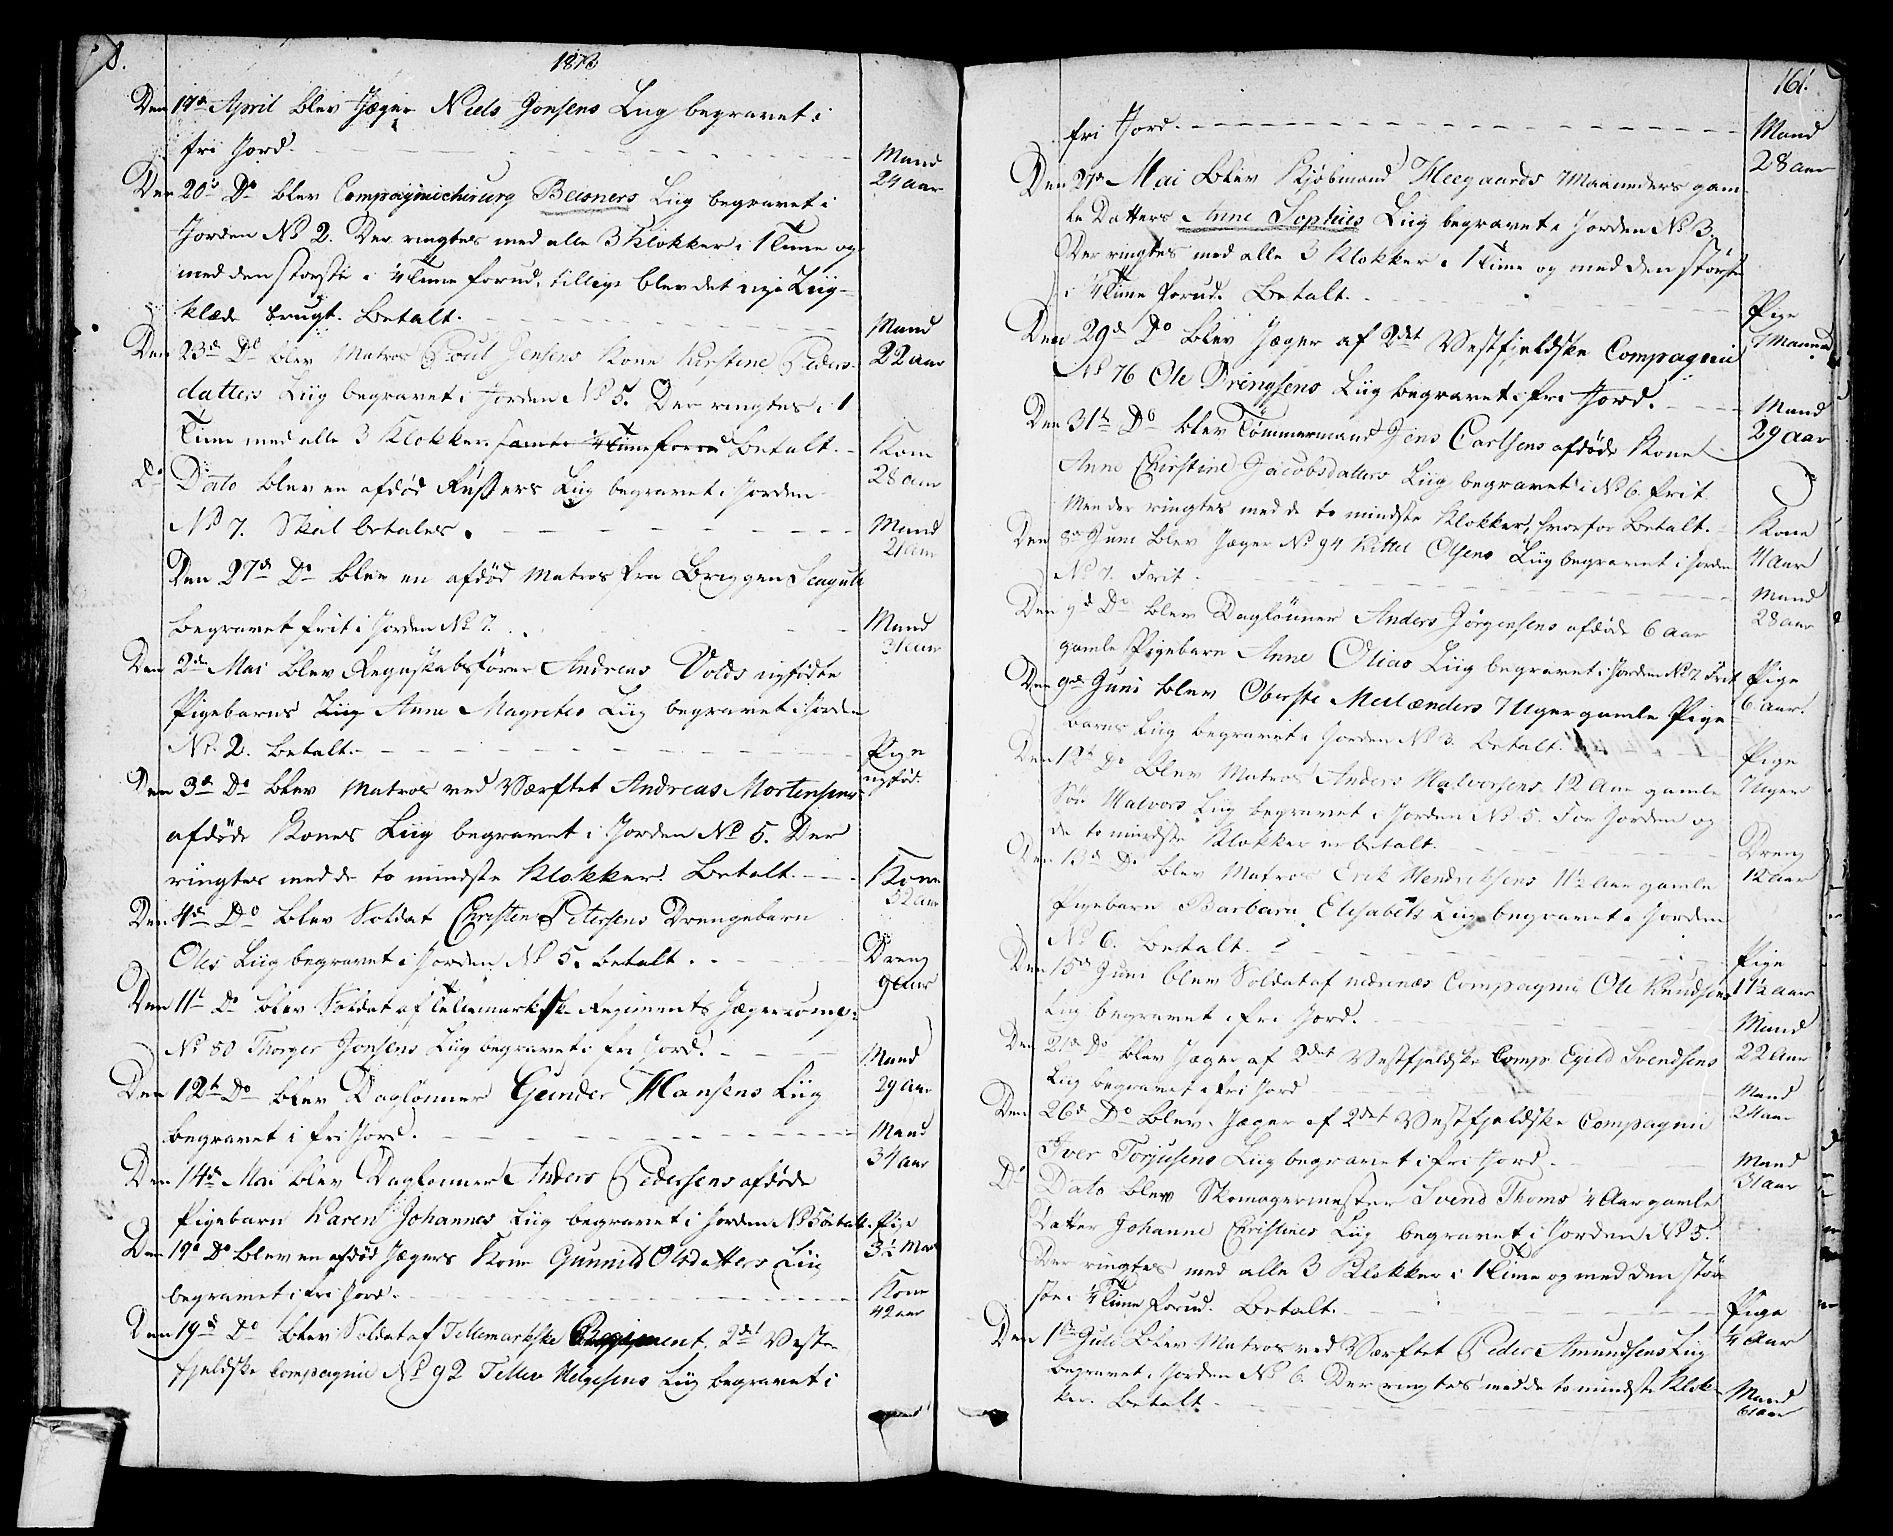 8.
1813
Den 17de April blev Jæger Niels Jonsens Liig begravet i
fri Jord. Mand 24 aar
Den 20de Do blev Compagniechirurg Beisners Liig begravet i
Jorden No 2. Der ringtes med alle 3 Klokker i 1 Time og
med den største i 1/4 Time forud, tillige blev det nye Liig-
klæde brugt. Betalt. Mand 22 aar
Den 23de Do blev Matros Poul Jensens Kone Kirstine Peders-
datters Liig begravet i Jorden No 5. Der ringtes i 1
Time med alle 3 Klokker samt 1/4 Time forud Betalt. Kone 28 aar
Do Dato blev en afdød Russers Liig begravet i Jorden
No 7. Skal betales. Mand 21 aar
Den 27de Do blev en afdød Matros fra Briggen Seagull
begravet frit i Jorden No 7. Mand 31 aar
Den 2den Mai blev Regnskabsfører Andreas Volds nyfødte
Pigebarns Liig Anne Magretes Liig begravet i Jorden
No. 2. betalt. Pige nyfød.
Den 3de Do blev Matros ved Værftet Andreas Mortensens
afdøde Kones Liig begravet i Jorden No 5. Der
ringtes med de to mindste Klokker. Betalt. Kone 32 aar
Den 4de Do blev Soldat Christen Petersens Drengebarn
Oles Liig begravet i Jorden No 5. betalt. Dreng 9 aar
Den 11te Do blev Soldat af Tellemarkske Regiments Jægercomp:
No 80 Thorger Jonsens Liig begravet i fri Jord. Mand 29 aar
Den 12te Do blev Daglønner Gunder Hansens Liig
begravet i fri Jord. Mand 34 aar
Den 14de Mai blev Daglønner Anders Pedersens afdøde
Pigebarn Karen Johannes Liig begravet i Jorden No 5 betalt. Pige 3 1/2 Maa
Den 19de Do blev en afdød Jægers Kone Gunnild Olsdatters Liig
begravet i fri Jord. Kone 42 aar
Den 19de Do blev Soldat af Tellemarkske Regiment, 2det Vest-
fjeldske Compagnie No 92 Tellev Helgesens Liig begravet i
161.
fri Jord. Mand 28 aar
Den 27de Mai blev Kjøbmand Heegaards 7 Maaneders gam-
le Datters Anne Sophies Liig begravet i Jorden No 3.
Der ringtes med alle 3 Klokker i 1 Time og med den største
i 1/4 Time forud. Betalt. Pige 7 Maaned
Den 29de Do blev Jæger af 2det Vestfjeldske Compagnie
No 76 Ole Dringsens Liig begravet i fri Jord. Mand 29 aar
Den 31te Do blev Tømmermand Jens Carlsens afdøde Kone
Anne Chirstine Jacobsdatters Liig begravet i No 6. frit
Men der ringtes med de to mindste Klokker, hvorfor Betalt. Kone 41 aar
Den 8de Juni blev Jæger No 94 Kittel Olsens Liig begravet i Jorden
No 7. Frit. Mand 28 aar
Den 9de Do blev Daglønner Anders Jørgensens afdøde 6 aar
gamle Pigebarn Anne Olias Liig begravet i Jorden No 7 Frit Pige 6 aar.
Den 9de Juni blev Oberste Meilænders 7 Uger gamle Pige-
barns Liig begravet i Jorden No 3. betalt. Pige 7 Uger
Den 12te Do blev Matros Anders Halvorsens 12 Aar gamle
Søn Halvors Liig begravet i Jorden No 5. For Jorden og
de to mindste Klokker er betalt. Dreng 12 aar
Den 13de Do blev Matros Erik Hendriksens 1 1/2 Aar gamle
Pigebarn Barbara Elisabets Liig begravet i Jorden
No 6. betalt. Pige 1 1/2 aar
Den 15de Juni blev Soldat af nedenæs Compagnie Ole Knudsens
Liig begravet i fri Jord. Mand 22 aar
Den 21de Do blev Jæger af 2det Vestfjeldske Comp Egild Svendsens
Liig begravet i fri Jord Mand 24 aar
Den 26de Do blev Jæger af 2det Vestfjeldske Compagnie
Iver Torjusens Liig begravet i fri Jord. Mand 31 aar
Do Dato blev Skomagermester Svend Thoms 1/4 Aar gamle
Datter Johanne Christines Liig begravet i Jorden No 5.
Der ringtes med alle 3 Klokker i 1 Time og med den stør-
ste i 1/4 Time forud. Betalt. Pige 1/4 Aar
Den 1ste Juli blev Matros ved Værftet Peder Amundsens Liig
begravet i Jorden No 6. Der ringtes med de to mindste Klok-
ker. Betalt. Mand 61 aar